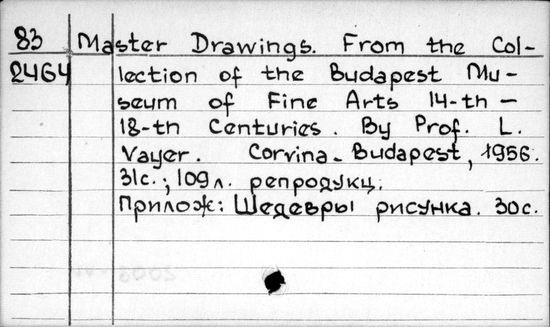 83 Master Drawings. From the Col-
2464 lection of the Budapest Mu-
seum of Fine Arts 14-th –
18-th Centuries. By Prof. L.
Vayer. Corvina. Budapest, 1956.
31с.; 109л. репродукц.
Прилож: Шедевры рисунка. 30с.